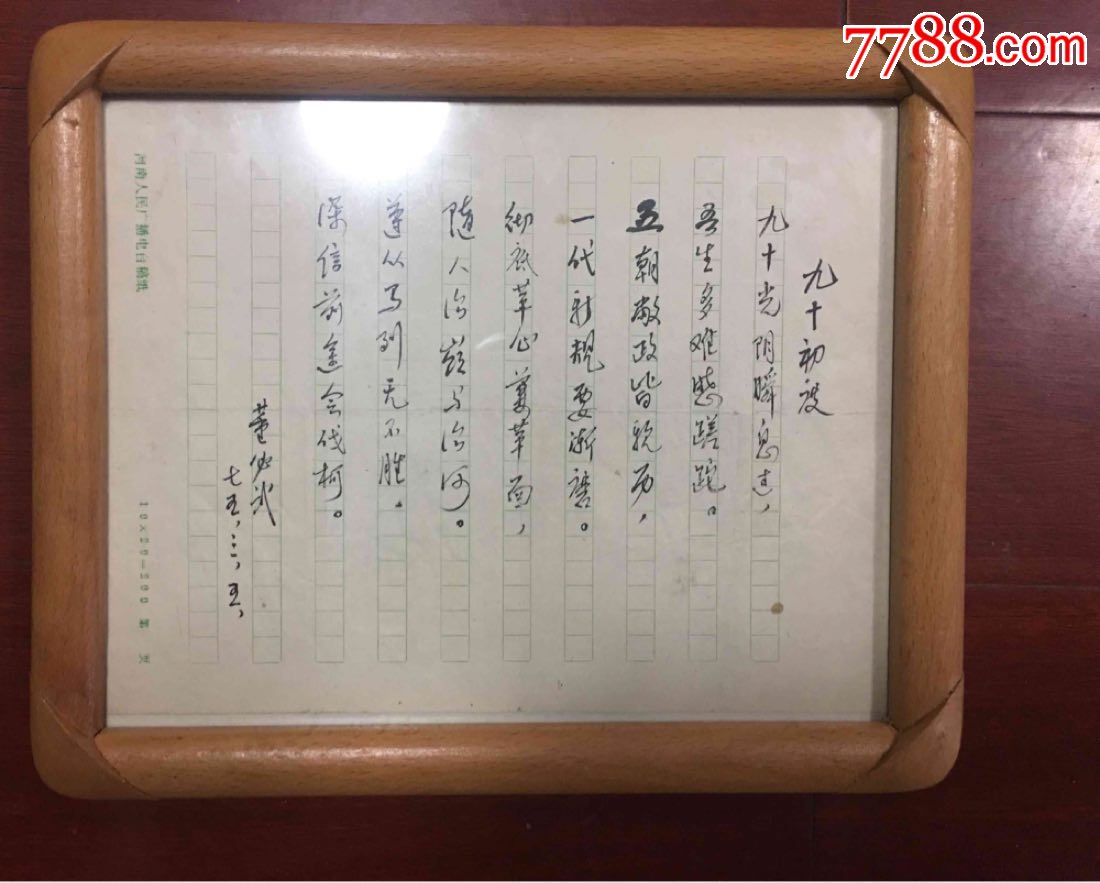 7788.com
九十初度
九十光阴瞬息过，
吾生多难感蹉跎。
五朝敝政皆亲历，
一代新规要渐磨。
彻底革心兼革面，
随人治岭与治河。
遵从马列无不胜。
深信前途会伐柯。
董必武
七五，三，五，
河南人民广播电台稿纸 10×20=200 第 页